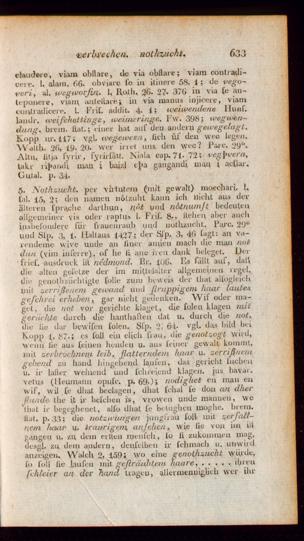 verbrechen. nothzucht. 633
claudere, viam obstare, de via obstare; viam contradi-
cere. l. alam. 66. obviare se in itinere 58. 1; de vego-
veri, al. wegworfin. l. Roth. 26. 27. 376 in via se an-
teponere, viam antestare; in via manus injicere, viam
contradicere. l. Fris. addit. 4. 1;
landr. Fw. 398; wegwen-
dung. brem. stat.; einer hat auf den andern gewegelagt.
Kopp nr. 117; vgl. wegewern, sich uf den wec legen.
Walth. 26, 19. 20. wer irret uns den wec? Parc. 29b.
Altn. sitja fyrir, fyrirsât. Niala cap. 71. 72: vegþvera,
take riþandi man i haizl eþa gangandi man i
Gutal. p. 34.
5. Nothzucht. per virtutem (mit gewalt) moechari. l.
sal. 15, 2; den namen nôtzuht kann ich nicht aus der
älteren sprache darthun, nôt und nôtnunft bedeuten
allgemeiner vis oder raptus l. Fris. 8., stehen aber auch
insbesondere für frauenraub und nothzucht. Parc. 29b
und Ssp. 3, 1. Haltaus 1427; der Ssp. 3, 46 sagt: an va-
rendeme wive unde an siner amien mach die man not
dun (vim inferre), of he si ane iren dank beleget. Der
fries. ausdruck ist nêdmond. Br. 106. Es fällt auf, daß
die alten gesetze der im mittelalter allgemeinen regel,
die genothzüchtigte solle zum beweis der that allogleich
mit zerrißenem gewand und struppigem haar lautes
geschrei erheben, gar nicht gedenken. Wif oder ma-
get, die not vor gerichte klaget, die solen klagen mit
gerüchte durch die hanthaften dat u. durch die not,
die sie dar bewisen solen. Ssp. 2, 64. vgl. das bild bei
Kopp 1, 87.; es soll ein elich frau, die genotzogt wird,
wenn sie aus seinen henden u. aus seiner gewalt kommt,
mit zerbrochnem leib, flatterendem haar u. zerrißnem
gebend zu hand hingehend laufen, das gericht suchen
u. ir laster weinend und schreiend klagen. jus bavar.
vetus (Heumann opusc. p. 69.); nodighet en man en
wif, wil se dhat beclagen, dhat schal se don an dher
stunde the it ir beschen is, vrowen unde mannen, we
that ir begeghenet, also dhat se betughen moghe. brem.
stat. p. 33; die notzwungen jungfrau soll mit zerfall-
nem haar u. traurigem ansehen, wie sie von im ist
gangen u. zu dem ersten mensch, so si zukommen mag,
desgl. zu dem andern, denselben ir schmach u. unwird
anzeigen. Walch 2, 159; wo eine genothzucht würde,
so soll sie laufen mit gesträubtem haare, . . . . . . ihren
schleier an der hand tragen, allermenniglich wer ihr